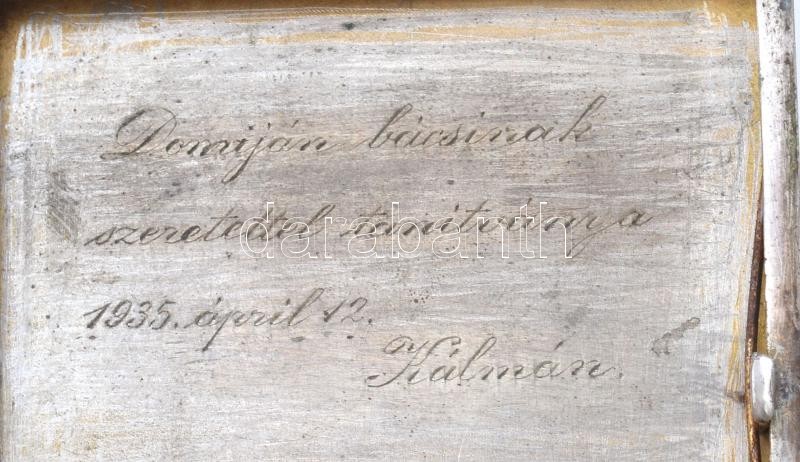 Domiján bácsinak
szeretettel tanitványa
darabanth
1935. ápril 12.
Kálmán.